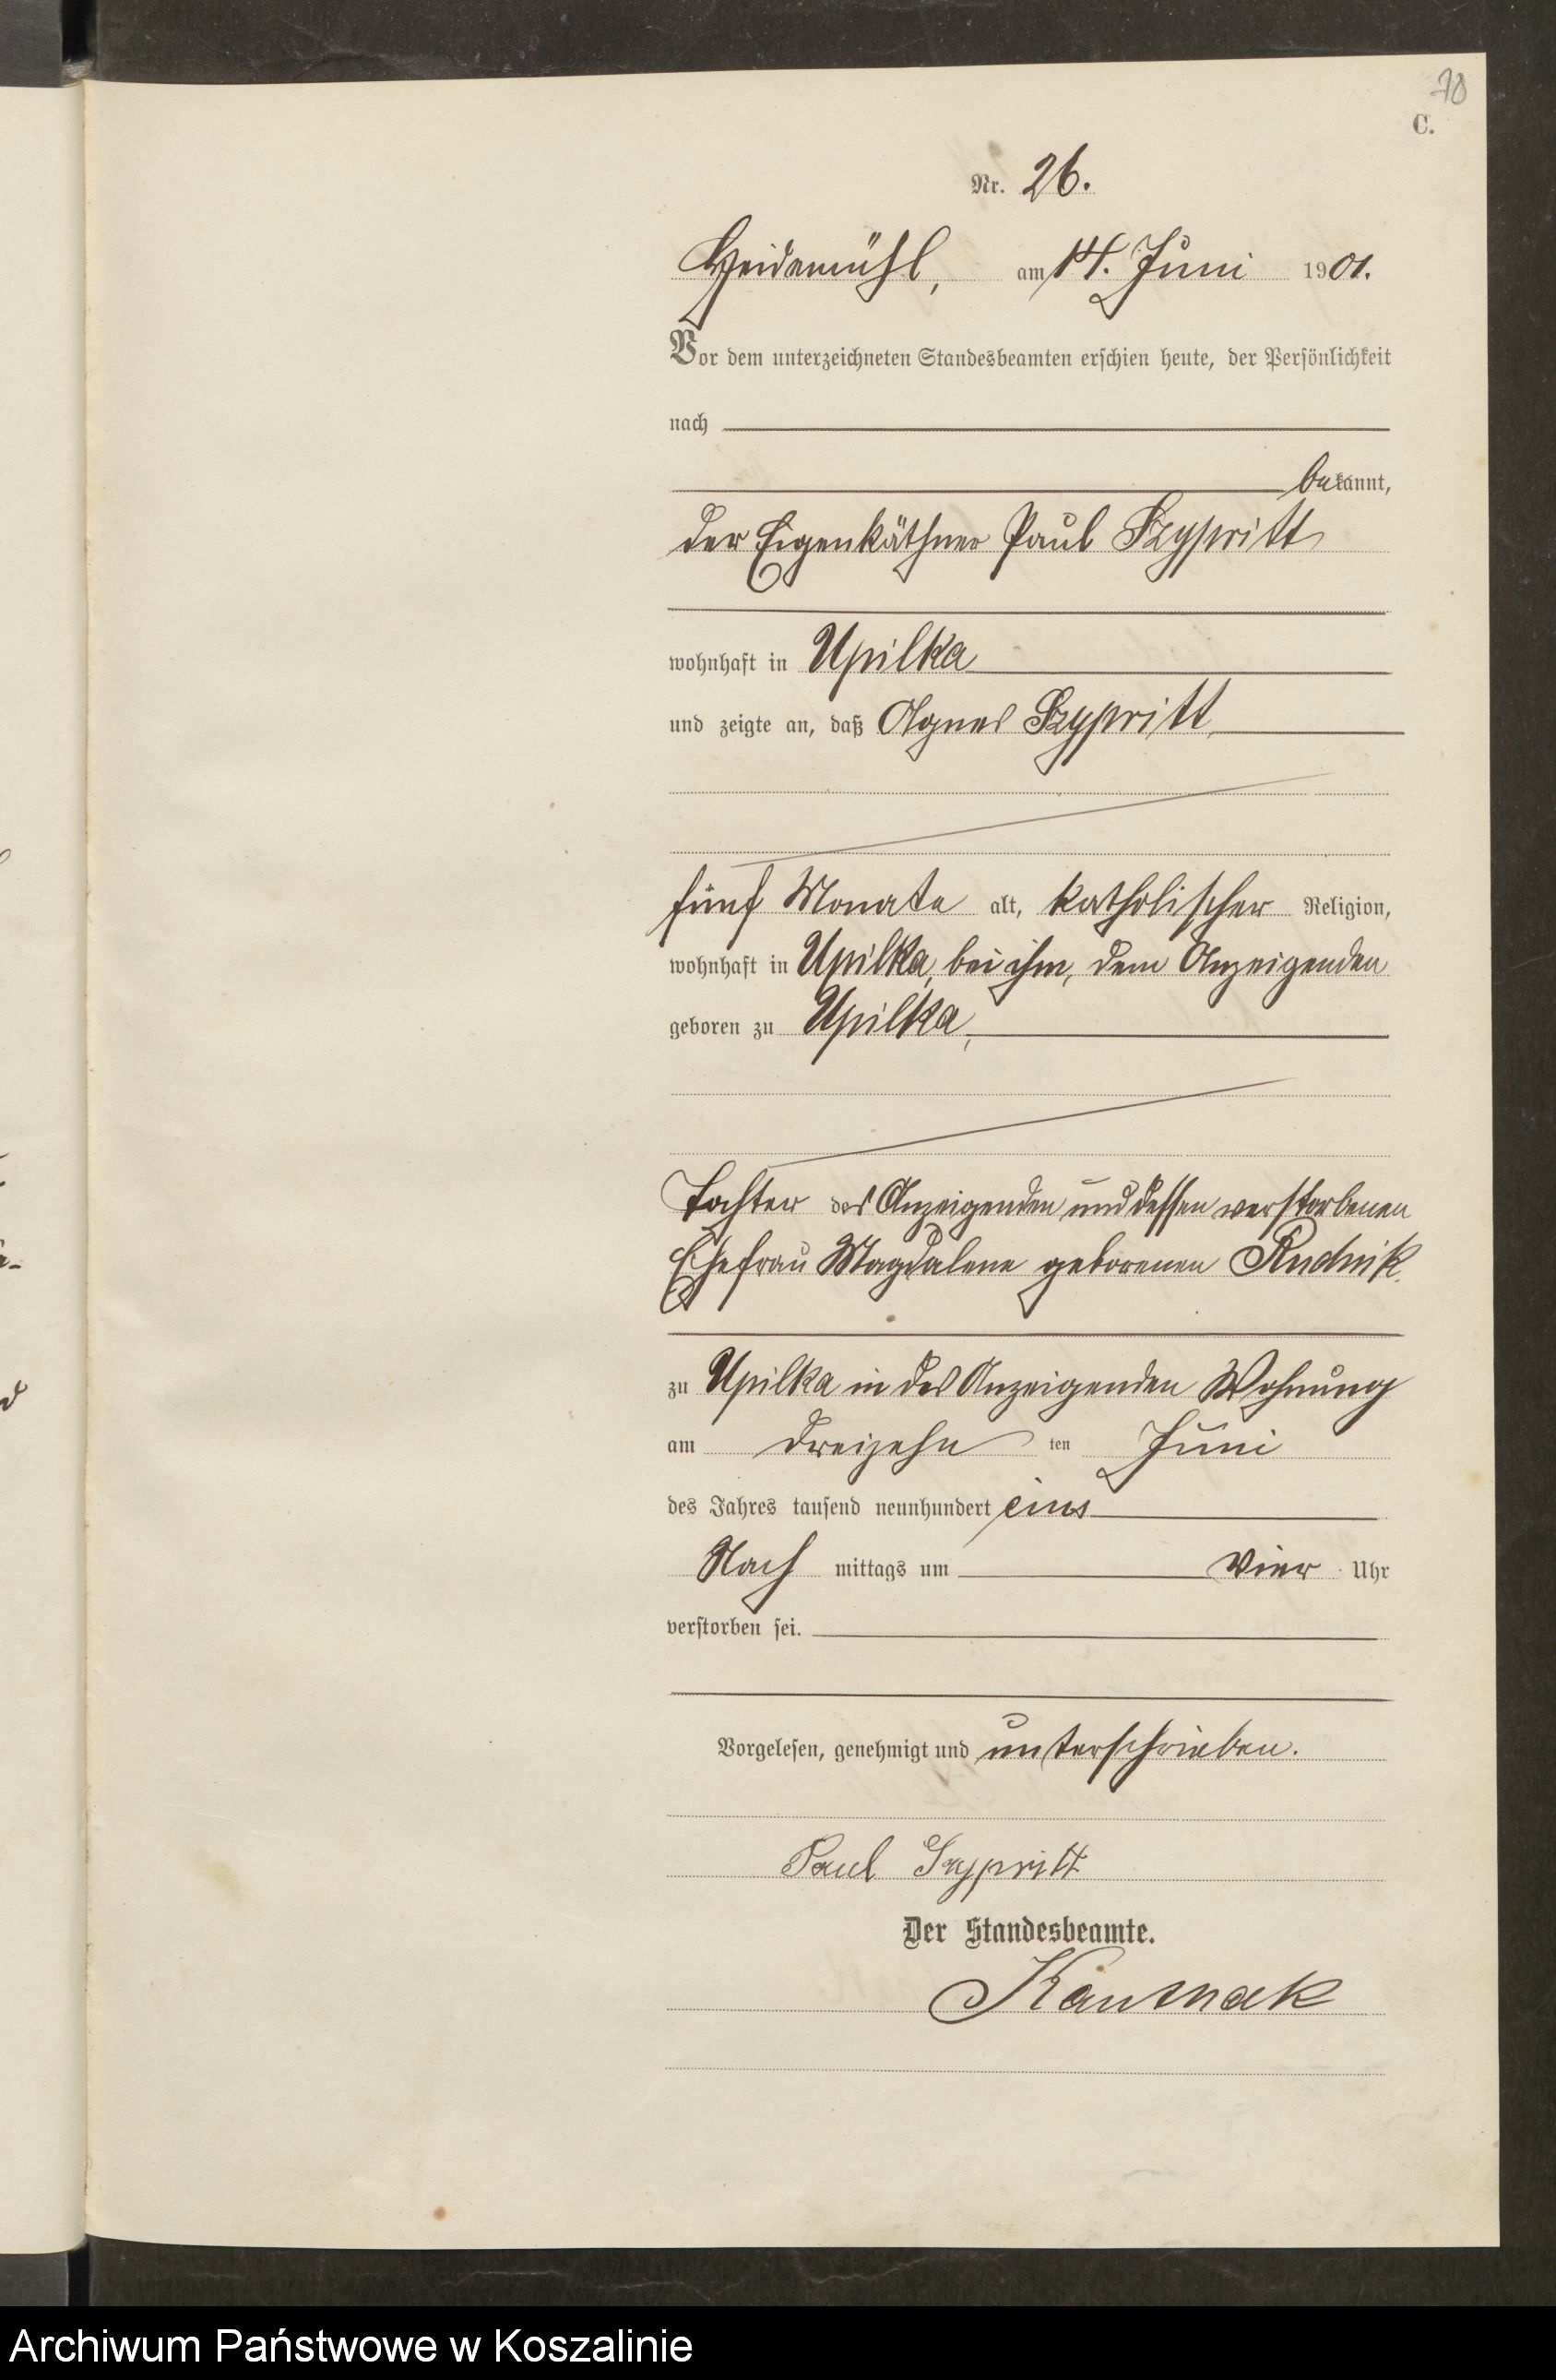 78
C.
Nr. 26.
Heidemühl, am 14. Juni 1901.
Vor dem unterzeichneten Standesbeamten erschien heute, der Persönlichkeit
nach
bekannt,
der Eigenkäthner Paul Szypritt
wohnhaft in Upilka
und zeigte an, daß Agnes Szypritt,
fünf Monate alt, katholischer Religion,
wohnhaft in Upilka, bei ihm, dem Anzeigenden
geboren zu Upilka,
Tochter des Anzeigenden und dessen verstorbenen
Ehefrau Magdalene geborenen Rudnik
zu Upilka in des Anzeigenden Wohnung
am dreizehn ten Juni
des Jahres tausend neunhundert eins
Nach mittags um vier Uhr
verstorben sei.
Vorgelesen, genehmigt und unterschrieben.
Paul Szypritt
Der Standesbeamte.
Archiwum Państwowe w Koszalinie